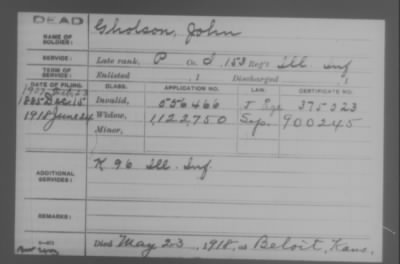 DEAD
NAME OF SOLDIER: Gholson, John
SERVICE: Late rank, P Co. I, 153 Reg't Ill Inf
TERM OF SERVICE: Enlisted , 1 Discharged , 1
DATE OF FILING. CLASS. APPLICATION NO. LAW. CERTIFICATE NO.
1885 Dec 15 Invalid, 556466 375323
1918 June 24 Widow, 1,122,750 Sep. 900245
Minor,
ADDITIONAL SERVICES: K 96 Ill. Inf.
REMARKS:
Died May 23, 1918, at Beloit, Kans,